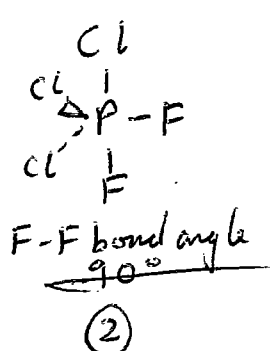 Cl
Cl
P-F
Cl
F
F-F bond angle
90°
2